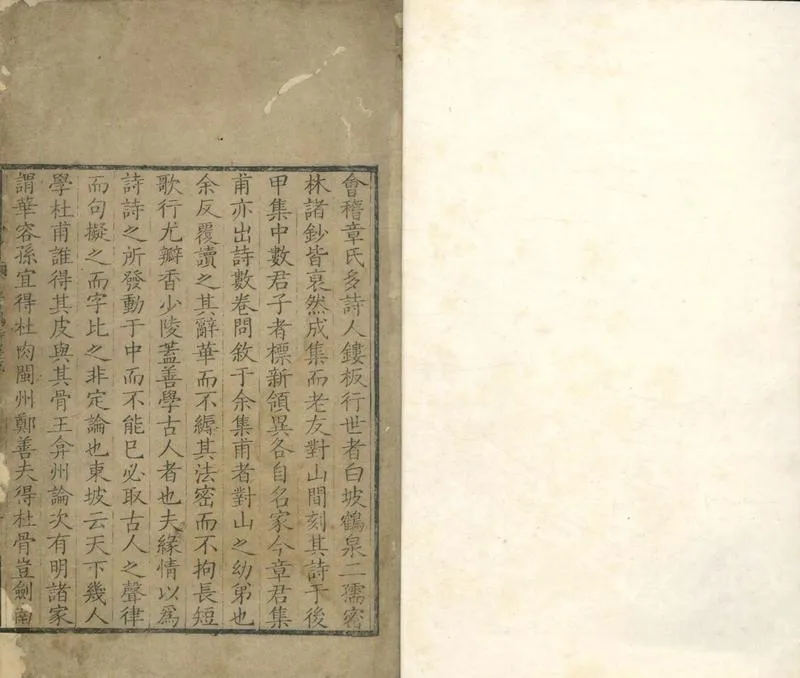 會稽章氏多詩人鏤板行世者白坡鶴泉二孺密
林諸鈔皆裒然成集而老友對山間刻其詩于後
甲集中數君子者標新領異各自名家今章君集
甫亦出詩數卷問敘于余集甫者對山之幼弟也
余反覆讀之其辭華而不縟其法密而不拘長短
歌行尤瓣香少陵蓋善學古人者也夫緣情以為
詩詩之所發動于中而不能已必取古人之聲律
而句擬之而字比之非定論也東坡云天下幾人
學杜甫誰得其皮與其骨王弇州論次有明諸家
謂華容孫宜得杜肉閩州鄭善夫得杜骨豈劍南